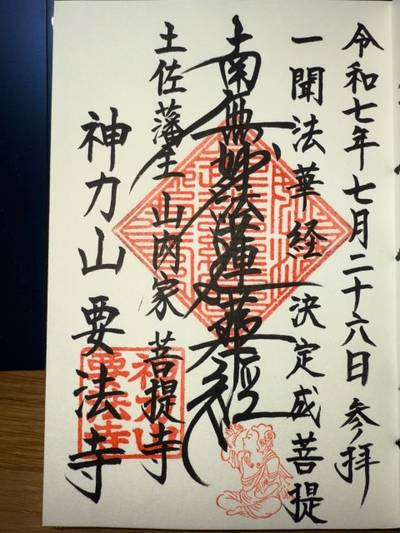 令和七年七月二十六日 参拝
一聞法華経 決定成菩提
南無妙法蓮華経
土佐藩主 山内家 菩提寺
神力山 要法寺